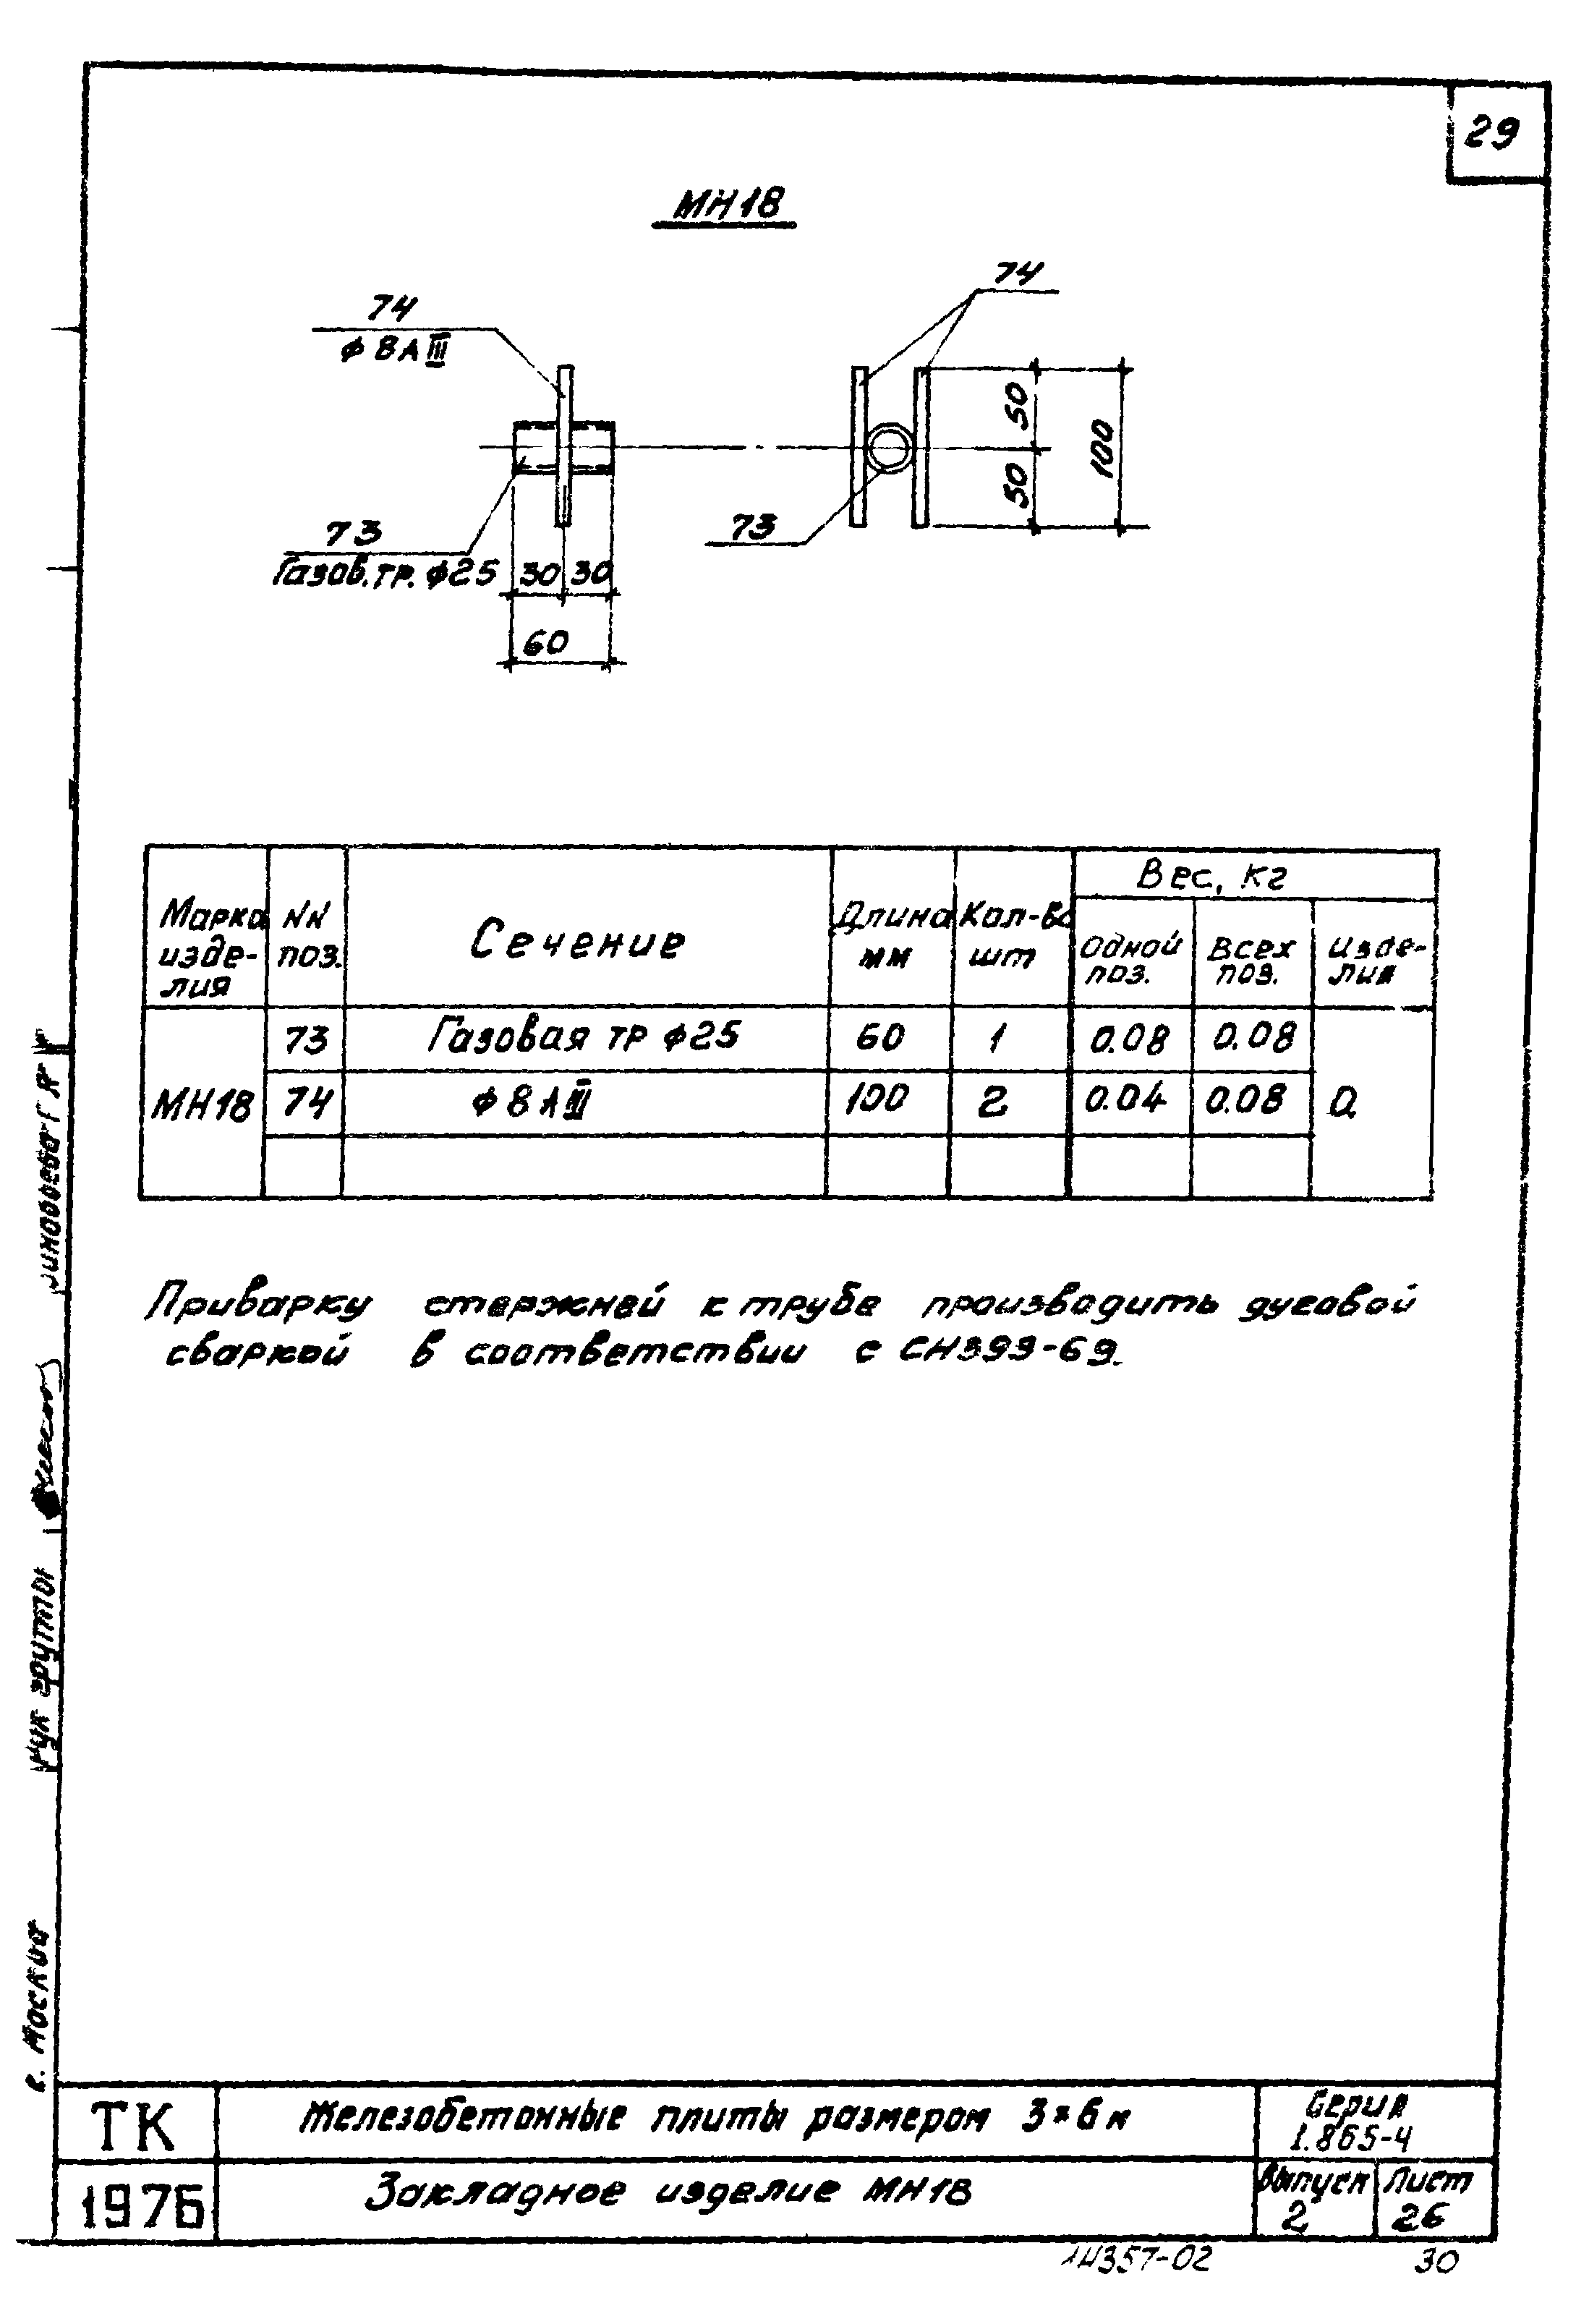 29
МН18
74
ф 8 А III
74
50
50
100
73
73
Газов.тр. ф25
30 30
60
Марка изде-лия
NN поз.
Сечение
Длина мм
Кол-во шт
Вес, кг
Одной поз.
Всех поз.
изде-лия
МН18
73 Газовая тр ф25 60 1 0.08 0.08
74 ф 8 А III 100 2 0.04 0.08
Приварку стержней к трубе производить дуговой
сваркой в соответствии с СН393-69.
Рук группы
г. Москва
ТК
1976
Железобетонные плиты размером 3×6 м
Закладное изделие МН18
Серия
1.865-4
Выпуск
2
Лист
26
14357-02
30